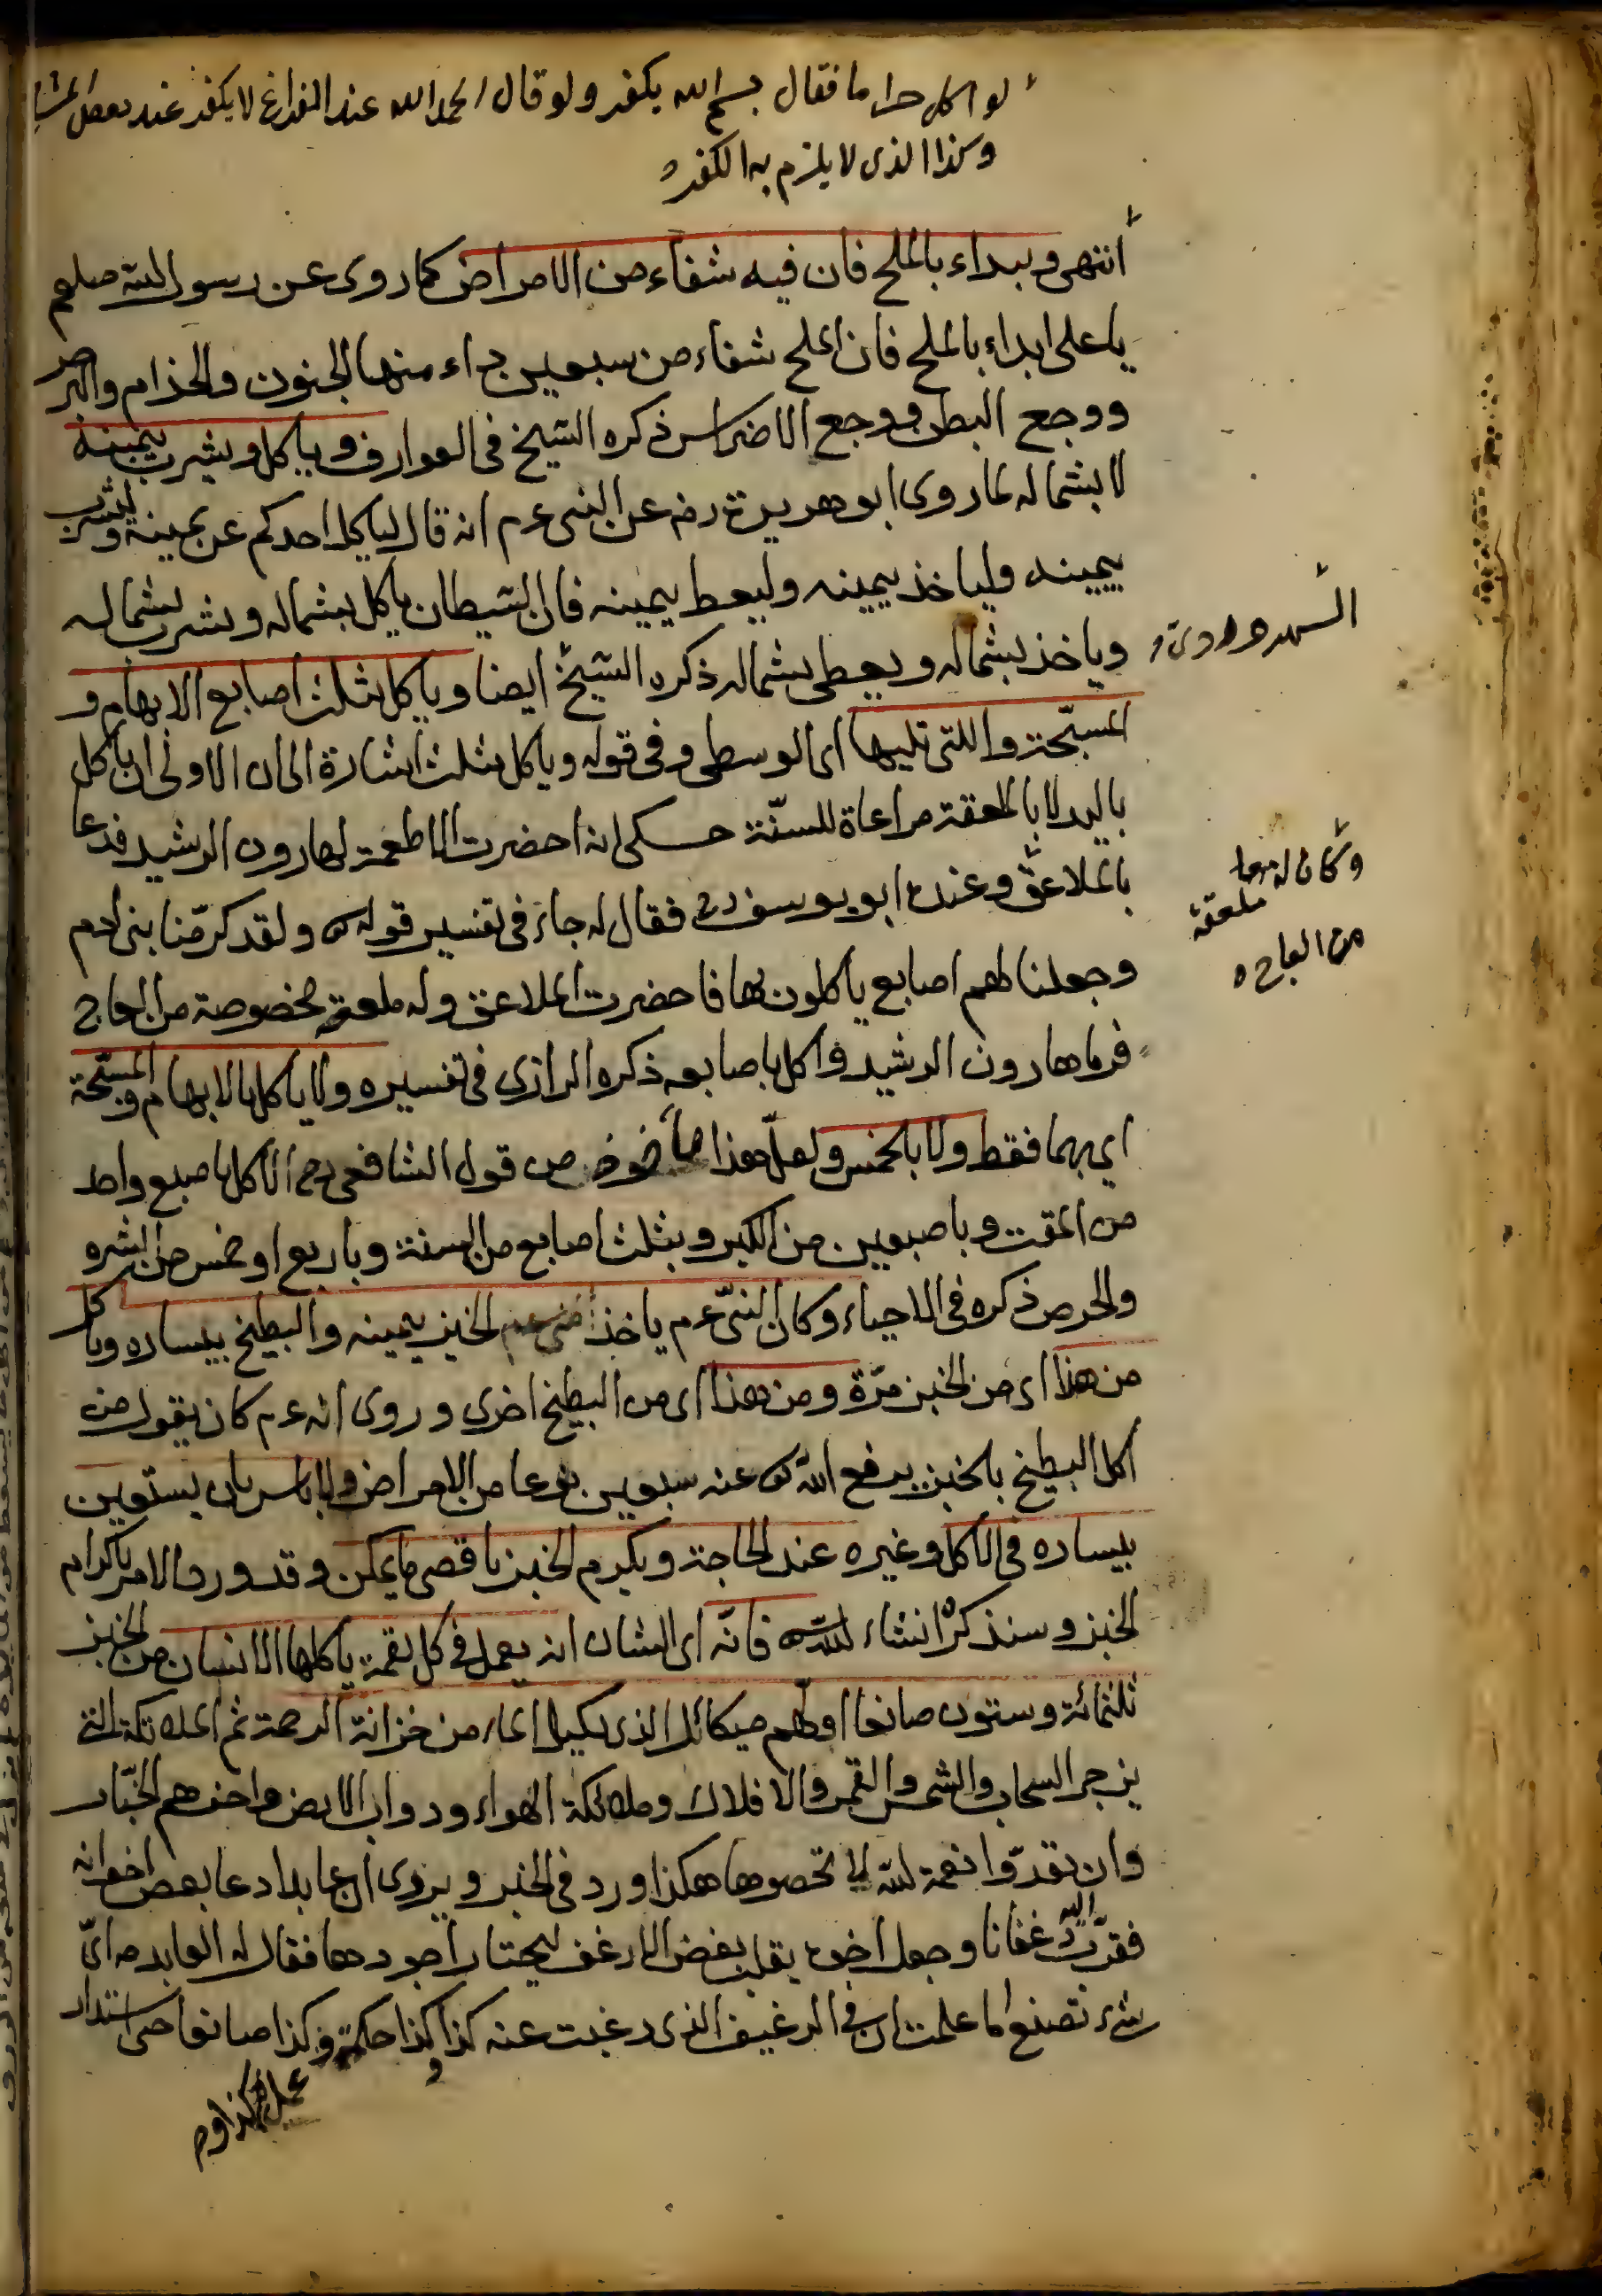 لو اكل حراما فقال بسم الله يكفر ولو قال الحمد الله عند الفراغ لا يكفر عند بعض المشايخ
وكذا الذى لا يلزم به الكفر
انتهى ويبداء بالملح فان فيه شفاء من الامراض كما روى عن رسول الله صلعم
يا على ابداء بالملح فان الملح شفاء من سبعين داء منها الجنون والجذام والبرص
ووجع البطن ووجع الاضراس ذكره الشيخ فى العوارف وياكل ويشرب بيمينه
لا بشماله لما روى ابو هريرة رض عن النبى عم انه قال لياكل احدكم عن يمينه وليشرب
بيمينه ولياخذ بيمينه وليعط بيمينه فان الشيطان ياكل بشماله ويشرب بشماله
وياخذ بشماله ويعطى بشماله ذكره الشيخ ايضا وياكل بثلث اصابع الابهام و
السهروردى
المسبّحة واللتى تليها اى الوسطى وفى قوله وياكل بثلث اشارة الى ان الاولى ان ياكل
باليد لا بالملعقة مراعاة للسنّة حكى انه احضرت الاطعمة لهارون الرشيد فدعا
بالملاعق وعنده ابو يوسف رح فقال له جاء فى تفسير قوله تع ولقد كرّمنا بنى ادم
وكان له منها
ملعقة
من العاج
وجعلنا لهم اصابع ياكلون بها فاحضرت الملاعق وله ملعقة مخصوصة من العاج
فرماها رون الرشيد واكل باصابعه ذكره الرازى فى تفسيره ولا ياكل بالابهام والمسبّحة
اى بهما فقط ولا بالخمس ولعلّ هذا مأخوذ من قول الشافعى رح الاكل باصبع واحد
من المقت وباصبعين من الكبر وبثلث اصابع من السنة وباربع او خمس من الشره
والحرص ذكره فى الاحياء وكان النبىّ عم ياخذ الخبز بيمينه والبطيخ بيساره وياكل
من هذا اى من الخبز مرّة ومن هذا اى من البطيخ اخرى وروى انه عم كان يقول من
اكل البطيخ بالخبز يدفع الله تع عنه سبعين نوعا من الامراض ولا باس بان يستعين
بيساره فى الاكل وغيره عند الحاجة ويكرم الخبز باقصى ما يمكن وقد ورد الامر باكرام
الخبز وسنذكره انشاء الله تع فانّه اى الشان انه يعمل فى كل لقمة ياكلها الانسان من الخبز
ثلثمائة وستون صانعا اولهم ميكائل الذى يكيل الماء من خزانة الرحمة ثم الملائكة التى
يزجر السحاب والشمس والقمر والافلاك وملائكة الهواء ودواب الارض واخرهم الخبّاز
وان تعدّوا نعمة الله لا تحصوها هكذا ورد فى الخبر ويروى ان عابدا دعا بعض اخوانه
فقرّب اليه رغفانا وجعل اخوه يقلب بعض الارغف ليختار اجودها فقال له العابد مه اىّ
شىء تصنع اما علمت ان فى الرغيف الذى رغبت عنه كذا وكذا حكمة وكذا صانعا حتى استدار